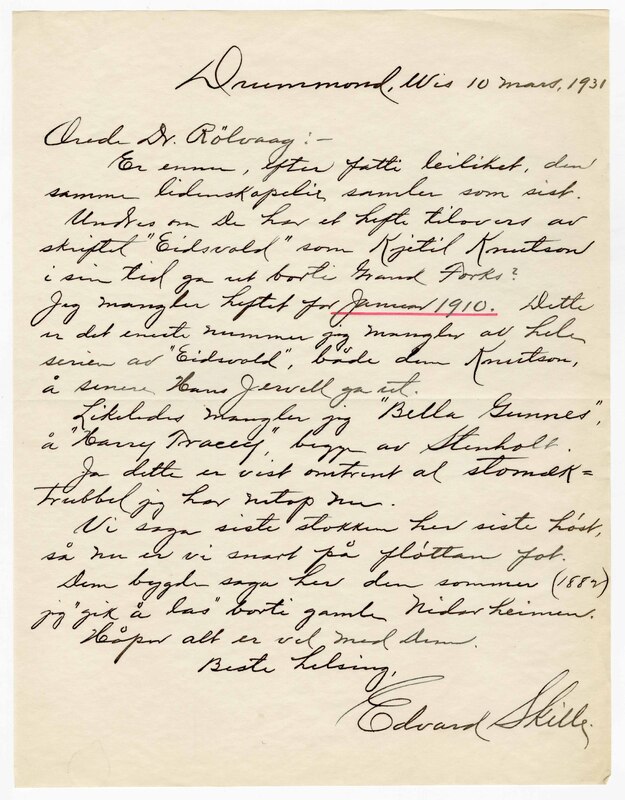 Drummond, Wis 10 mars, 1931
Ærede Dr. Rölvaag:-
Er ennu, efter fatti leiliket, den
samme lidenskapelie samler som sist.
Undres om De har et hefte tilovers av
skriftet "Eidsvold" som Kjetil Knutson
i sin tid ga ut borti Grand Forks?
Jeg mangler heftet for Januar 1910. Dette
er det eneste nummer jeg mangler av hele
serien av "Eidsvold", både dem Knutson,
å senere Hans Jervell ga ut.
Likeledes mangler jeg "Bella Gunnes",
å "Harry Tracey", begge av Stenholt.
Ja dette er vist omtrent al stomæk=
trubbel jeg har netop nu.
Vi saga siste stokken her siste höst,
så nu er vi snart på flöttan fot.
Dem bygde saga her den sommer (1882)
jeg "gik å las" borti gamle Nidarheimen.
Håper alt er vel med Dem.
Beste helsing,
Edvard Skille.